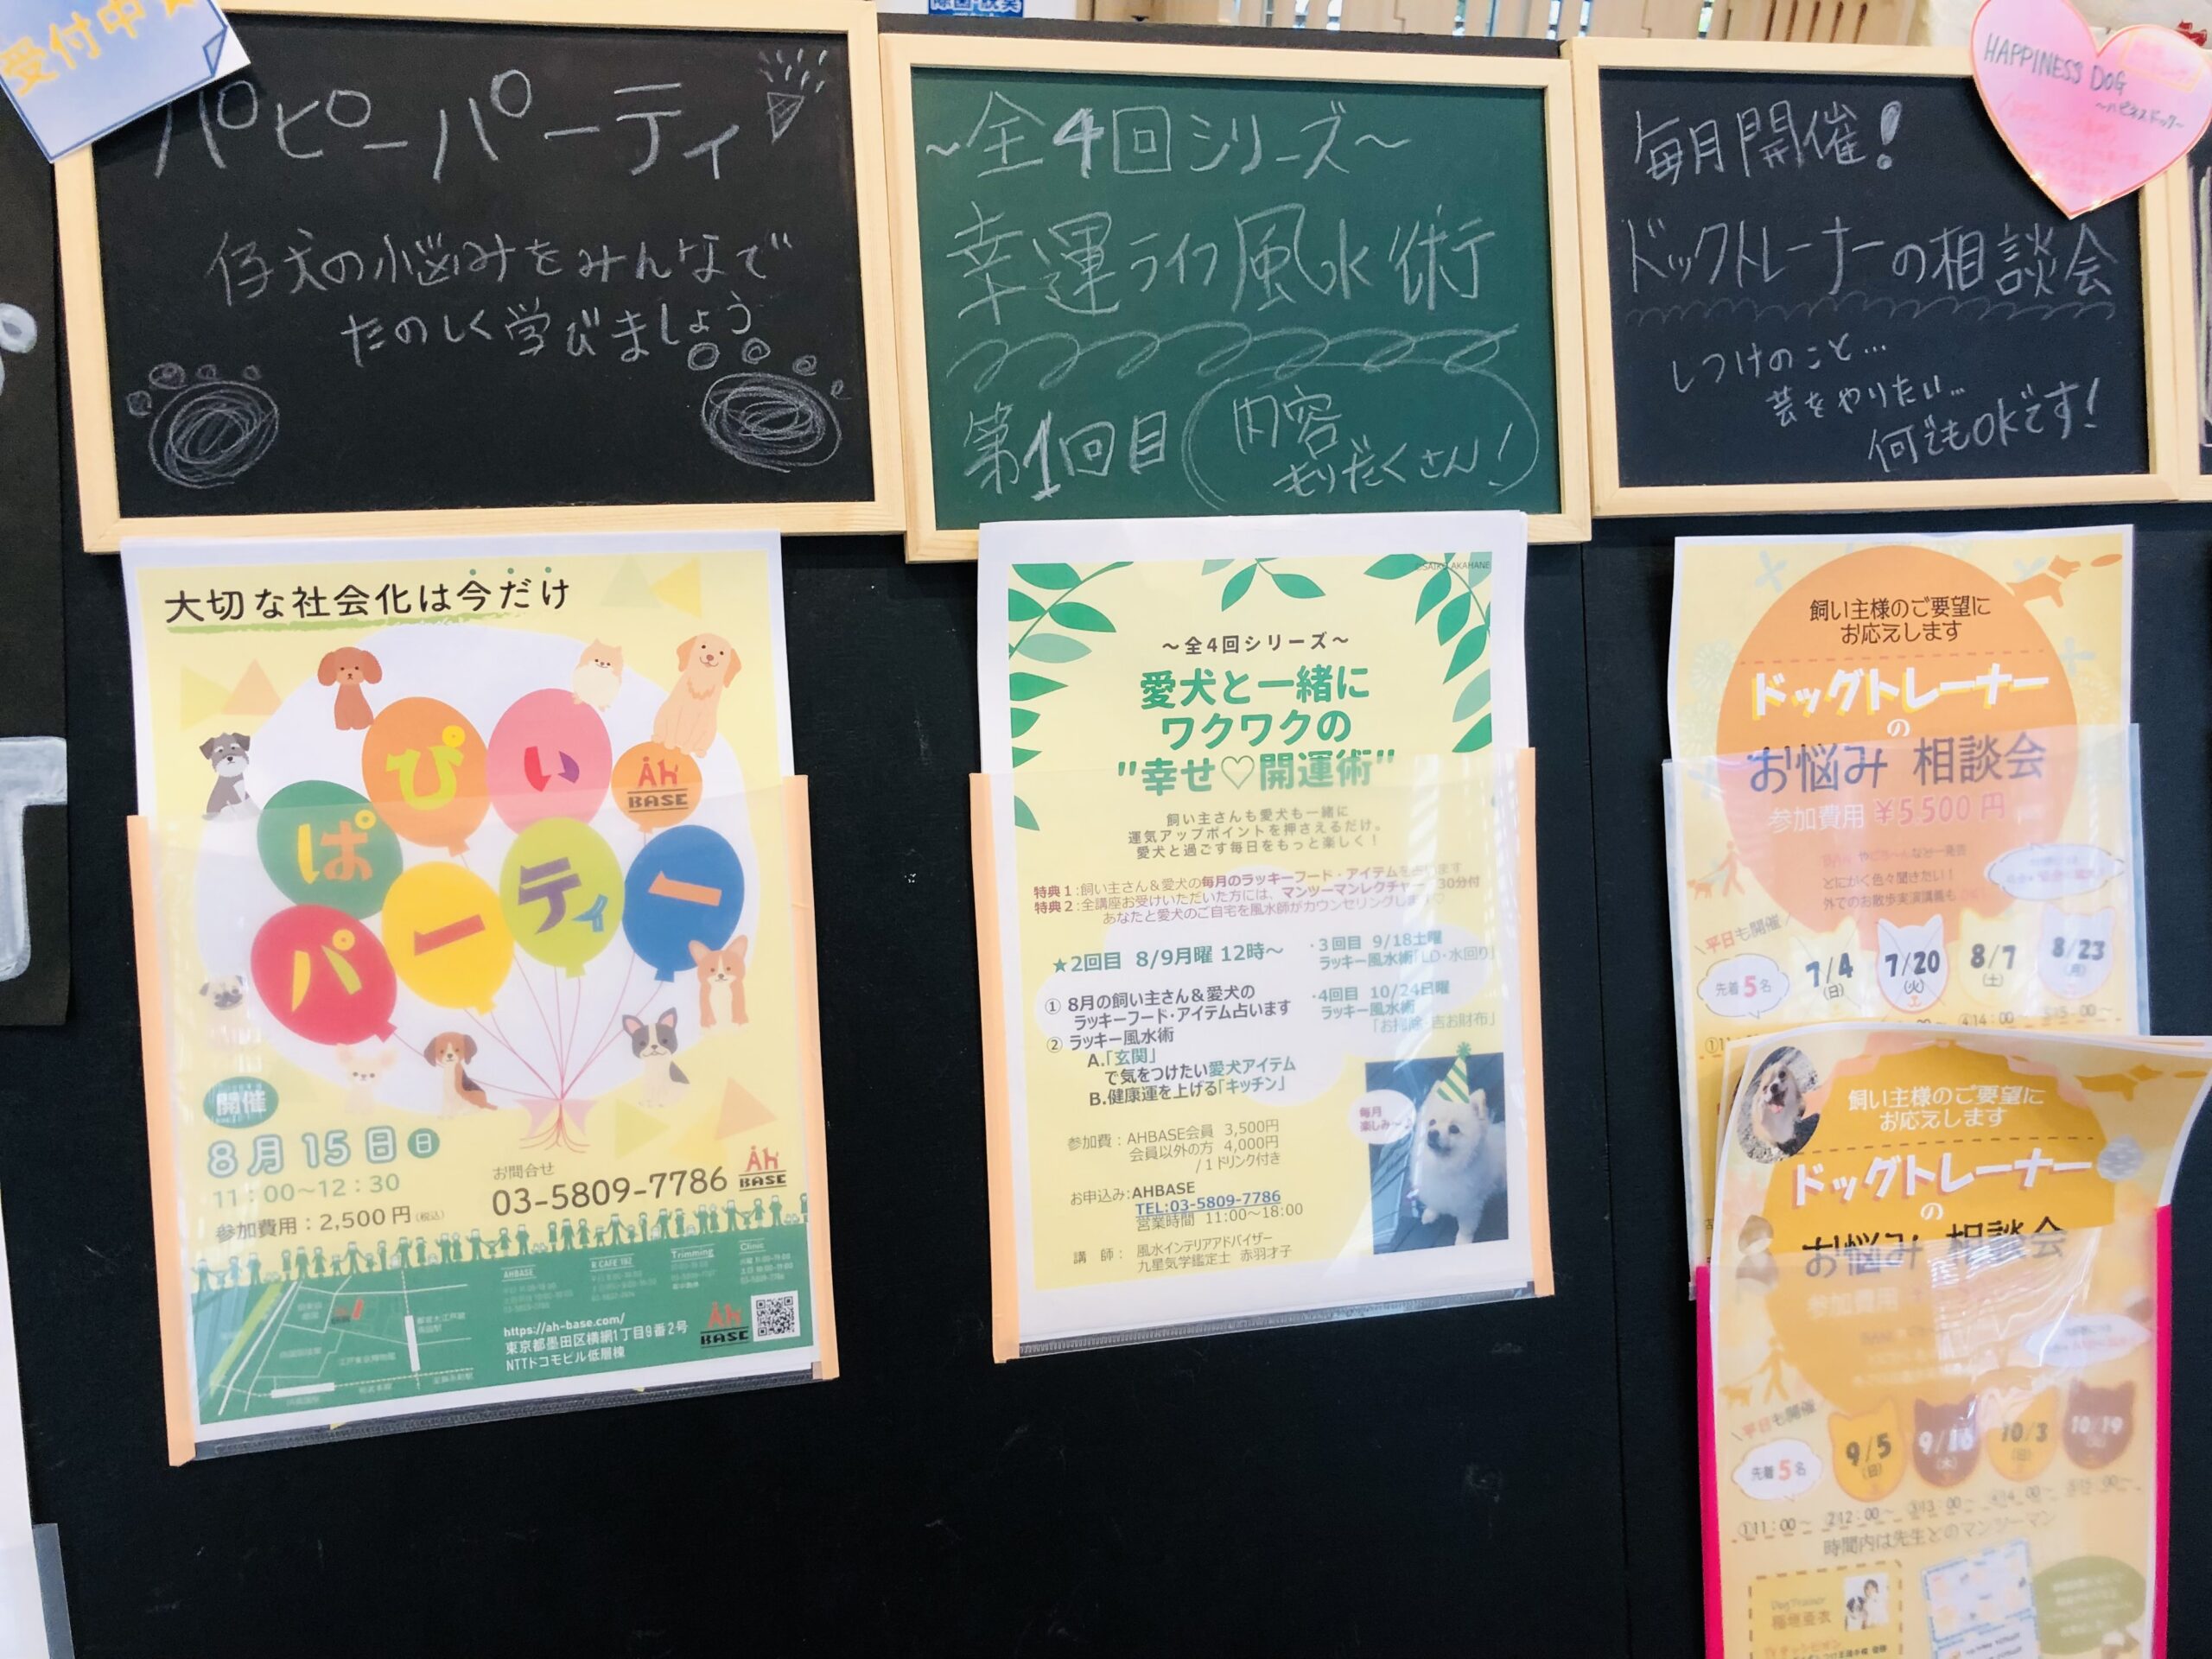 受付中
パピーパーティ
仔犬の悩みをみんなで
たのしく学びましょう
～全4回シリーズ～
幸運ライフ風水術
第1回目
内容
もりだくさん!
HAPPINESS DOG
～ハピネスドッグ～
毎月開催!
ドックトレーナーの相談会
しつけのこと…
芸をやりたい…
何でもOKです!
大切な社会化は今だけ
ぱぴぃ
パーティー
Ah BASE
開催
8月15日 日
11：00～12：30
参加費用：2,500円(税込)
お問合せ
03-5809-7786
Ah BASE
AHBASE
Trimming
Clinic
https://ah-base.com/
東京都墨田区横網1丁目9番2号
NTTドコモビル低層棟
Ah BASE
～全4回シリーズ～
愛犬と一緒に
ワクワクの
"幸せ♡開運術"
飼い主さんも愛犬も一緒に
運気アップポイントを押さえるだけ。
愛犬と過ごす毎日をもっと楽しく！
特典1：飼い主さん＆愛犬の毎月のラッキーフード・アイテムを占います
特典2：全講座お受けいただいた方には、マンツーマンレクチャー 30分付
あなたと愛犬のご自宅を風水師がカウンセリングします♡
★2回目 8/9月曜 12時～
① 8月の飼い主さん＆愛犬の
ラッキーフード・アイテム占います
② ラッキー風水術
A.「玄関」
で気をつけたい愛犬アイテム
B.健康運を上げる「キッチン」
・3回目 9/18土曜
ラッキー風水術「LD・水回り」
・4回目 10/24日曜
ラッキー風水術
毎月
楽しみ～♪
参加費：AHBASE会員 3,500円
会員以外の方 4,000円
/1ドリンク付き
お申込み:AHBASE
TEL:03-5809-7786
営業時間 11:00～18:00
講 師： 風水インテリアアドバイザー
九星気学鑑定士 赤羽才子
飼い主様のご要望に
お応えします
ドッグトレーナー
の
お悩み 相談会
参加費用 ¥5,500円
とにかく色々聞きたい！
外でのお散歩実演講義も
\平日も開催/
先着5名
7/4
(日)
7/20
(火)
8/7
(土)
8/23
(月)
飼い主様のご要望に
お応えします
ドッグトレーナー
の
お悩み 相談会
参加費用
\平日も開催/
先着5名
9/5
(日)
9/16
(木)
10/3
(日)
10/19
①11：00～ ②12：00～ ③13：00～ ④14：00～ ⑤15：00～
時間内は先生とのマンツーマン
Dog Trainer